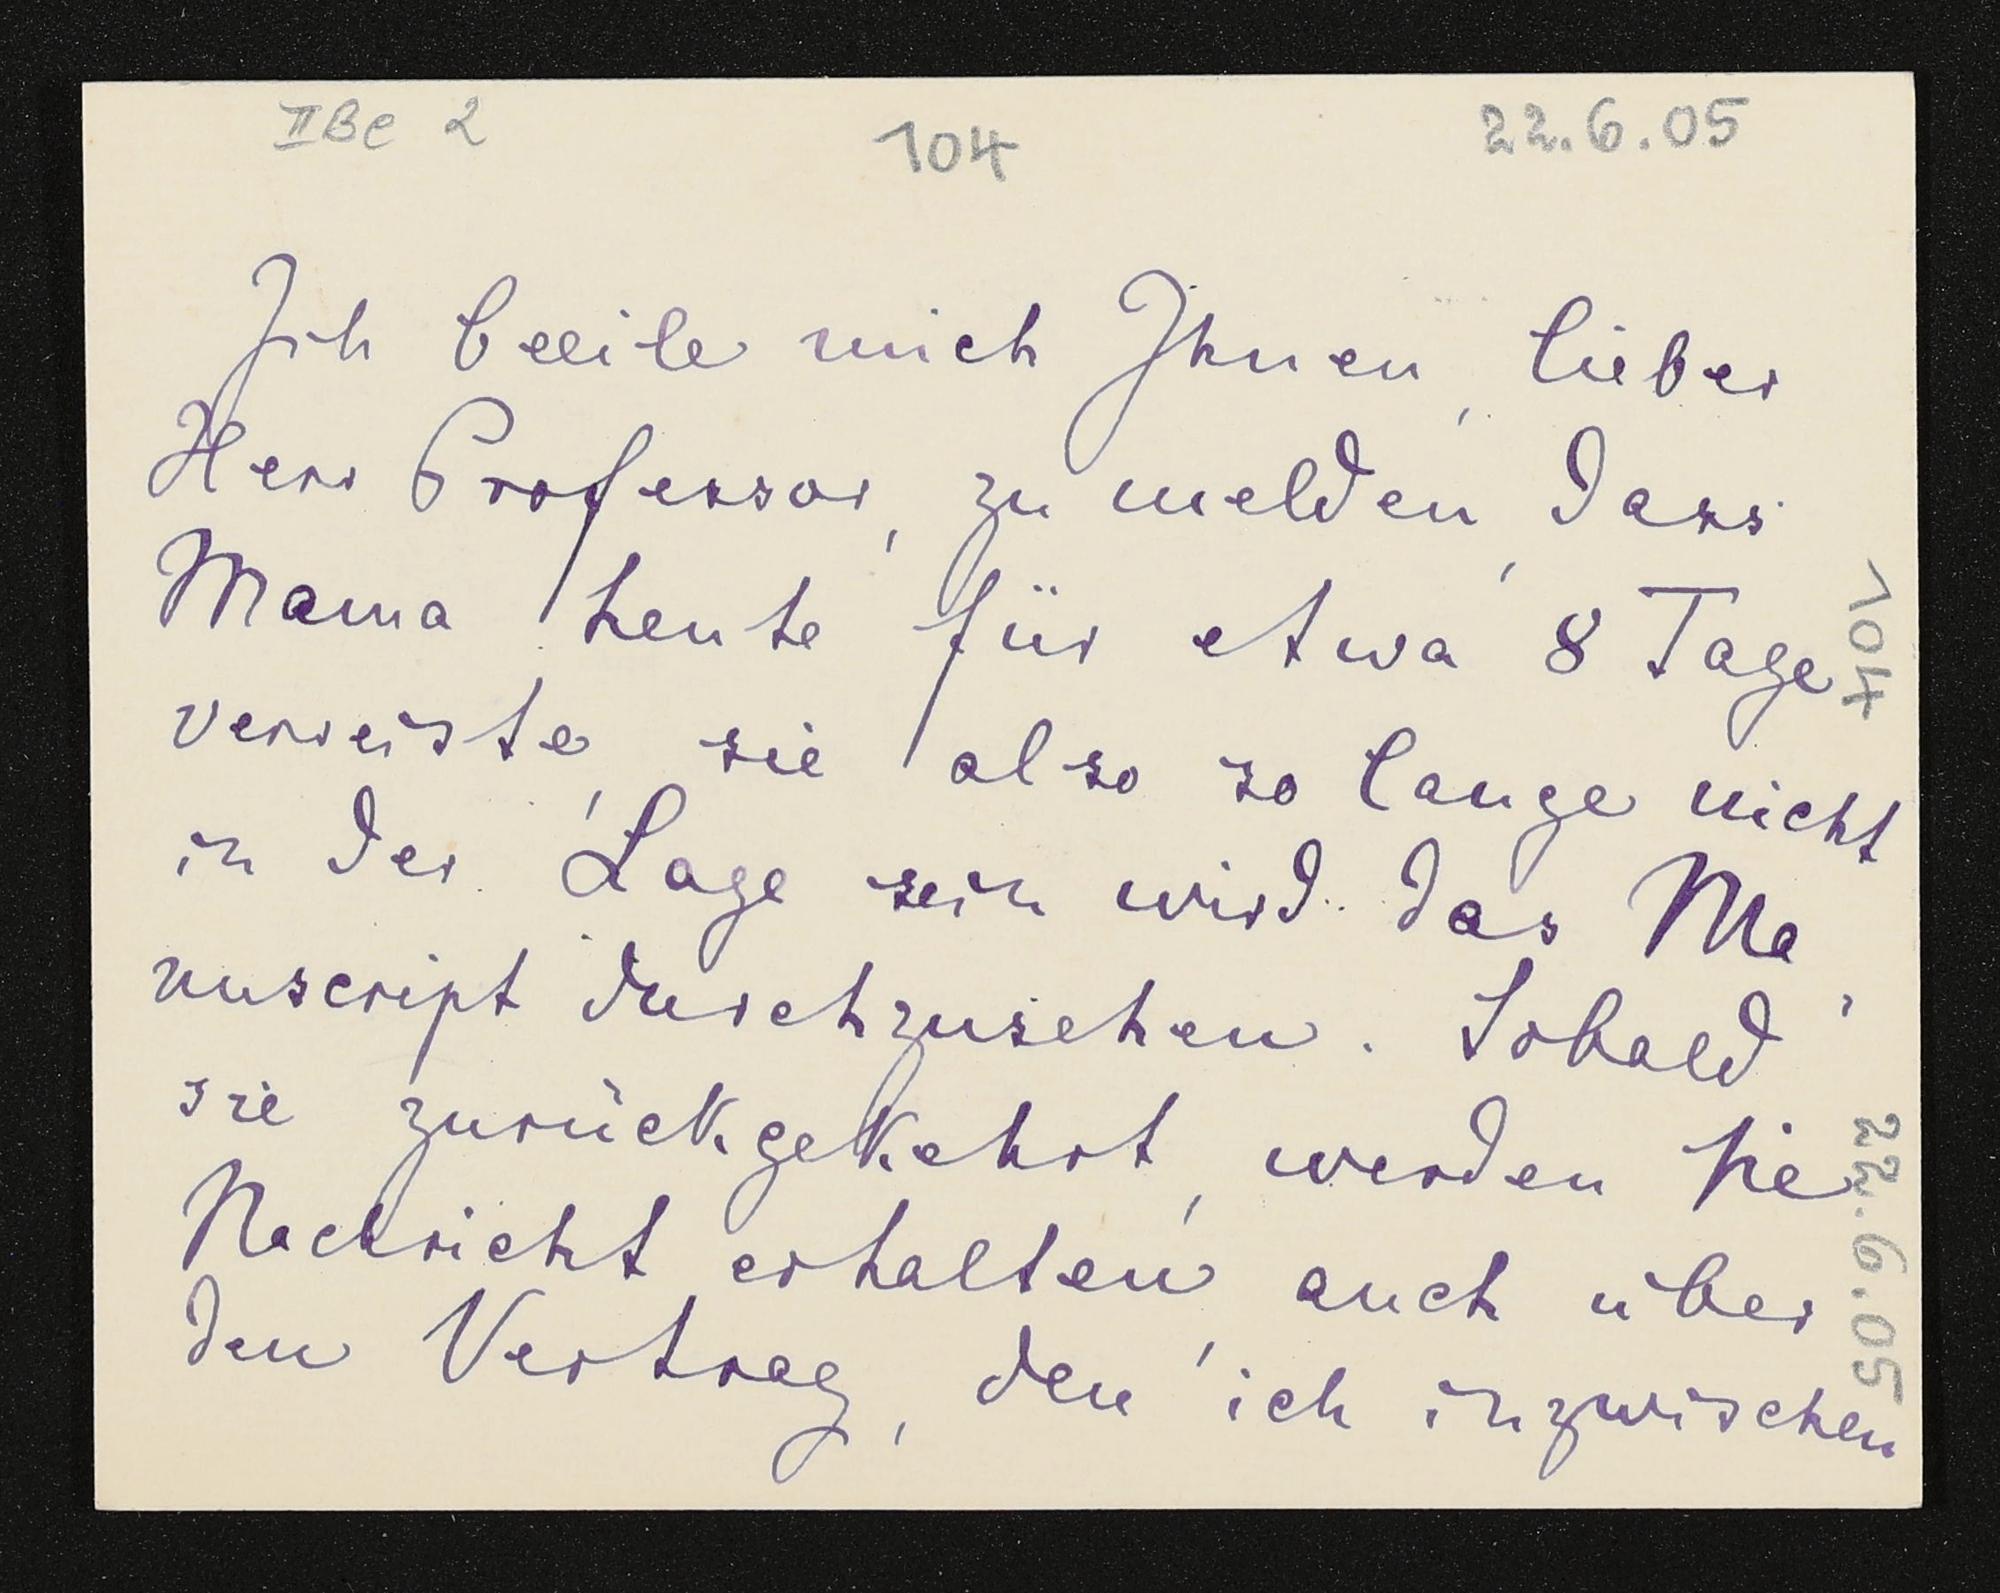 IIBc 2
104
22.6.05
Ich beeile mich Ihnen, lieber
Herr Professor, zu melden, dass
Mama heute für etwa 8 Tage
verreiste, sie also so lange nicht
in der Lage sein wird das Ma-
nuscript durchzusehen. Sobald
sie zurückgekehrt, werden Sie
Nachricht erhalten, auch über
den Vertrag, den ich inzwischen
104
22.6.05